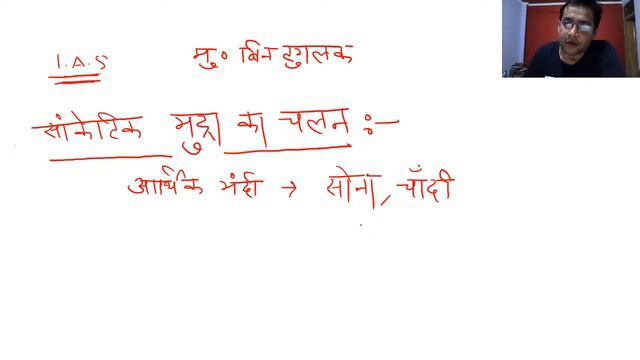 I.A.S
मु० बिन तुगलक
सांकेतिक मुद्रा का चलन :-
आर्थिक मंदी → सोना, चाँदी